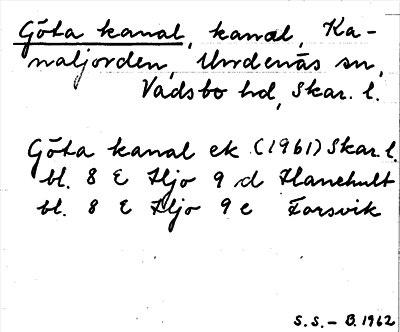 Göta kanal, kanal, Ka-
naljorden, Undenäs sn,
Vadsbo hd, Skar. l.
Göta kanal ek (1961) Skar. l.
bl. 8 E Hjo 9 d Hanehult
bl. 8 E Hjo 9 e Forsvik
S.S. – B. 1962